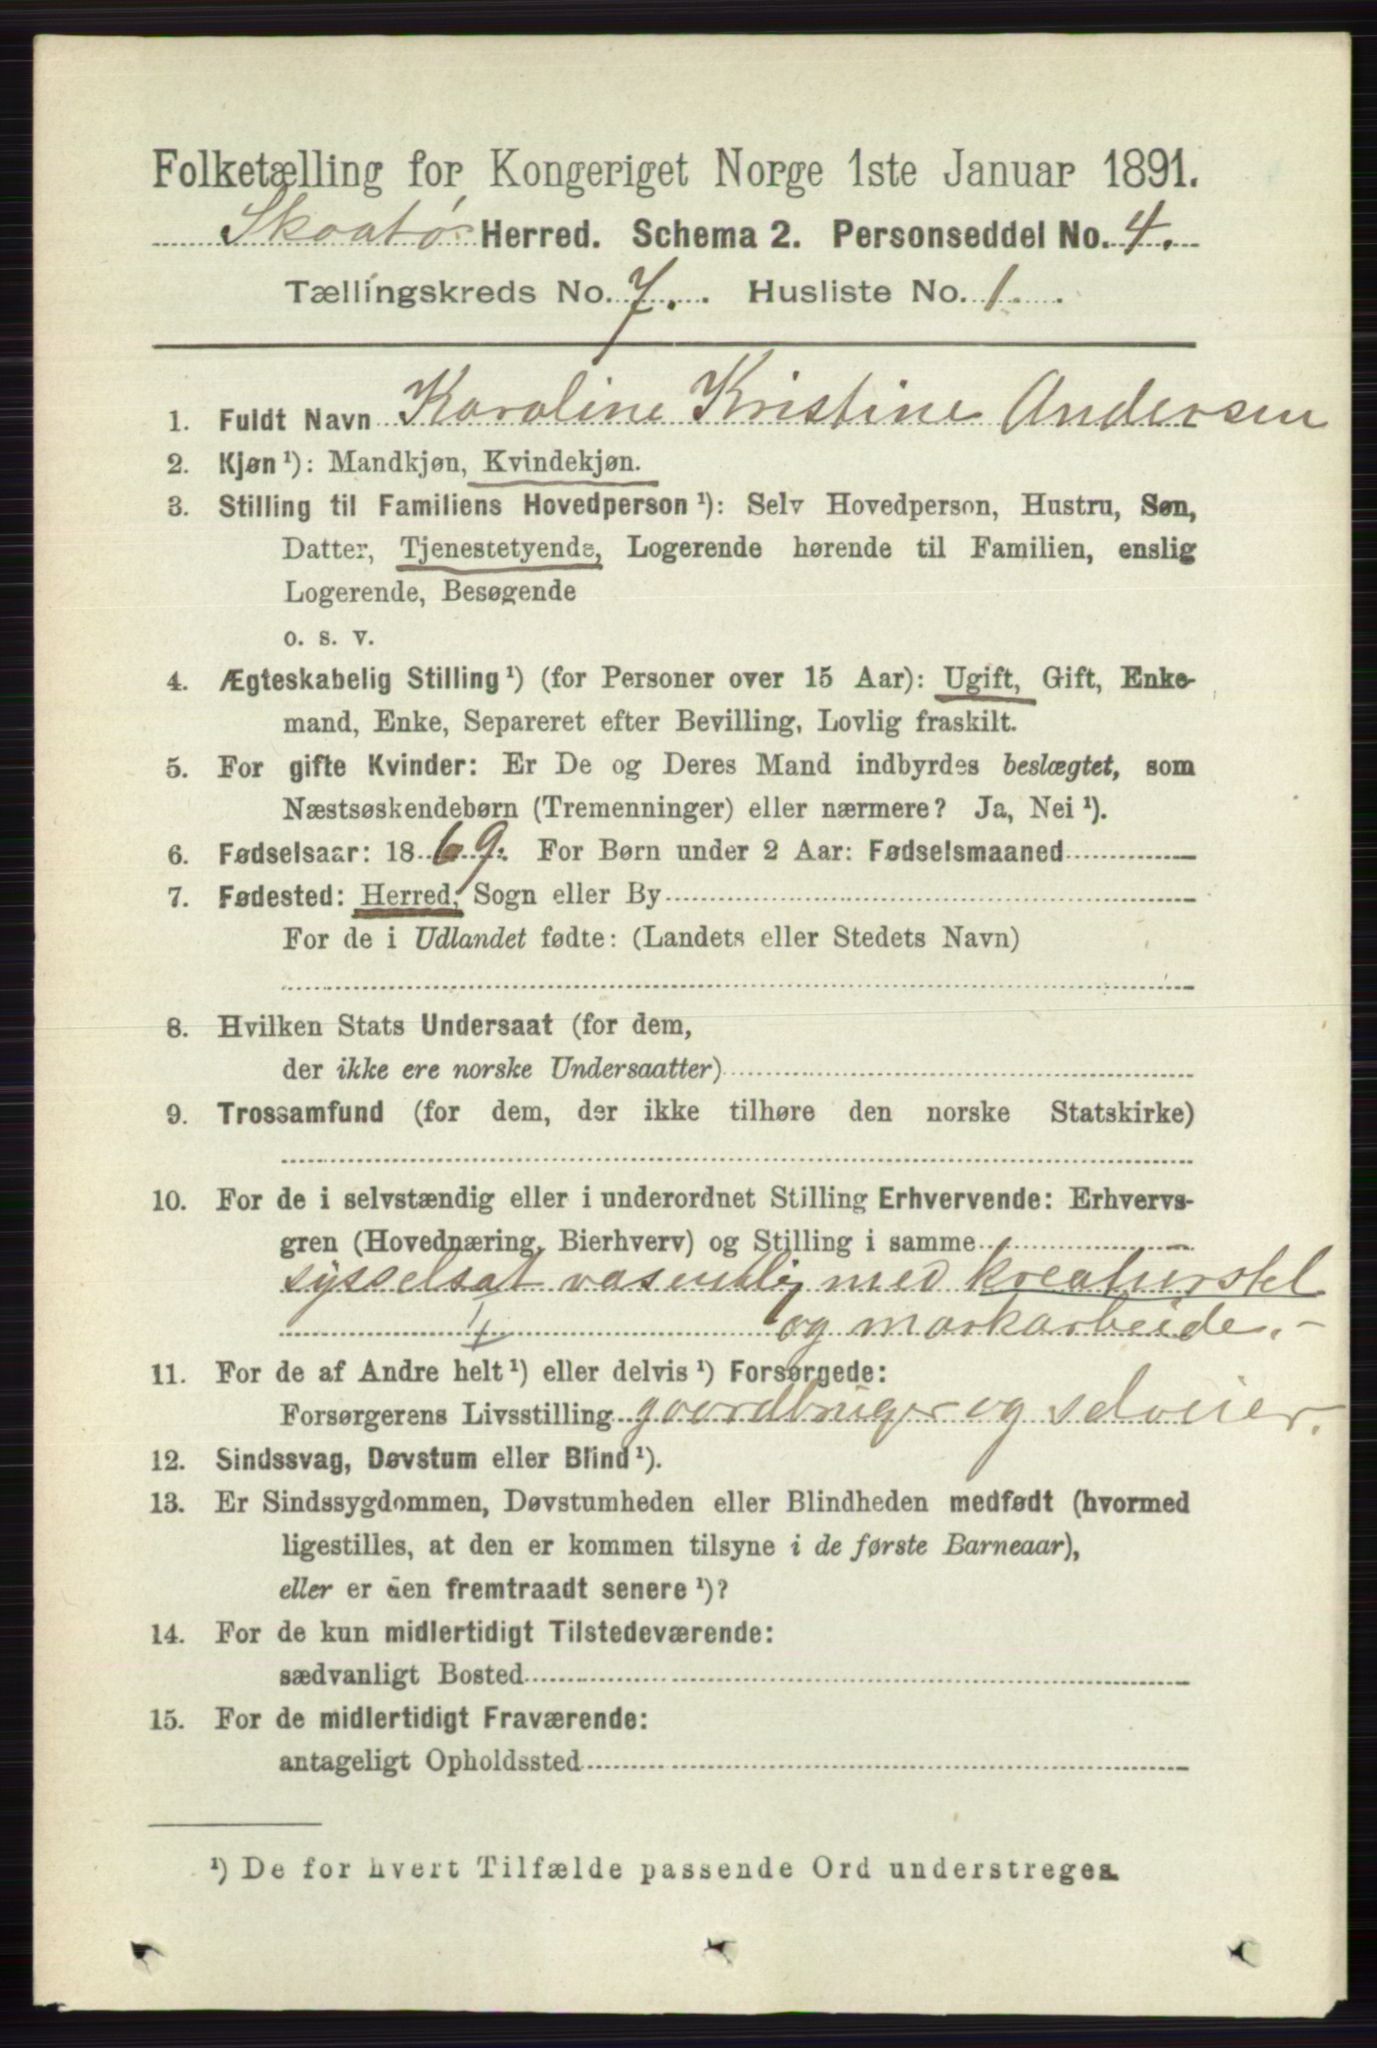 Folketælling for Kongeriget Norge 1ste Januar 1891.
Skaatø Herred. Schema 2. Personseddel No. 4.
Tællingskreds No. 7. Husliste No. 1.
1. Fuldt Navn Karoline Kristine Andersen
2. Kjøn ¹): Mandkjøn, Kvindekjøn.
3. Stilling til Familiens Hovedperson ¹): Selv Hovedperson, Hustru, Søn,
Datter, Tjenestetyende, Logerende hørende til Familien, enslig
Logerende, Besøgende
o. s. v.
4. Ægteskabelig Stilling ¹) (for Personer over 15 Aar): Ugift, Gift, Enke-
mand, Enke, Separeret efter Bevilling, Lovlig fraskilt.
5. For gifte Kvinder: Er De og Deres Mand indbyrdes beslægtet, som
Næstsøskendebørn (Tremenninger) eller nærmere? Ja, Nei ¹).
6. Fødselsaar: 1869. For Børn under 2 Aar: Fødselsmaaned
7. Fødested: Herred, Sogn eller By
For de i Udlandet fødte: (Landets eller Stedets Navn)
8. Hvilken Stats Undersaat (for dem,
der ikke ere norske Undersaatter)
9. Trossamfund (for dem, der ikke tilhøre den norske Statskirke)
10. For de i selvstændig eller i underordnet Stilling Erhvervende: Erhvervs-
gren (Hovednæring, Bierhverv) og Stilling i samme
sysselsat væsentlig med kreaturstel
og markarbeide. -
11. For de af Andre helt ¹) eller delvis ¹) Forsørgede:
Forsørgerens Livsstilling gaardbruger og selveier.
12. Sindssvag, Døvstum eller Blind ¹).
13. Er Sindssygdommen, Døvstumheden eller Blindheden medfødt (hvormed
ligestilles, at den er kommen tilsyne i de første Barneaar),
eller er den fremtraadt senere ¹)?
14. For de kun midlertidigt Tilstedeværende:
sædvanligt Bosted
15. For de midlertidigt Fraværende:
antageligt Opholdssted
¹) De for hvert Tilfælde passende Ord understreges.